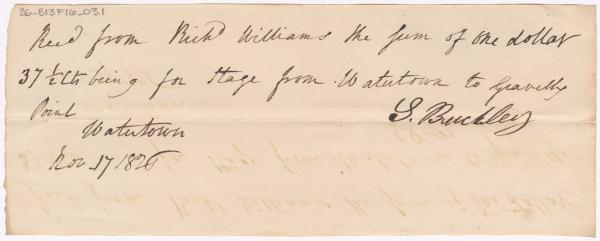 26-B13F16_031
Recd from Richd Williams the sum of one dollar
37 ½ Cts being for Stage from Watertown to Gravelly
Point
S. Buckley
Watertown
Nov 17 1826